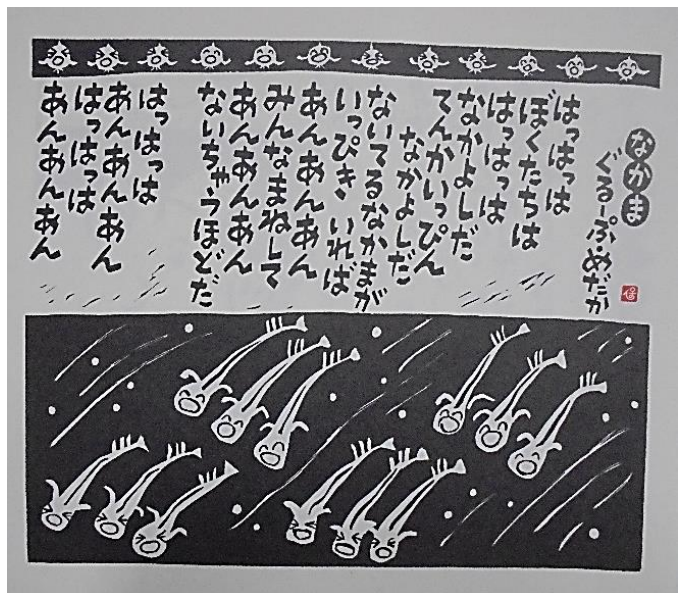 なかま
ぐるーぷ・めだか
はっはっは
ぼくたちは
はっはっは
なかよしだ
てんかいっぴん
なかよしだ
ないてるなかまが
いっぴき いれば
あんあんあん
みんなまねして
あんあんあん
ないちゃうほどだ
はっはっは
あんあんあん
はっはっは
あんあんあん